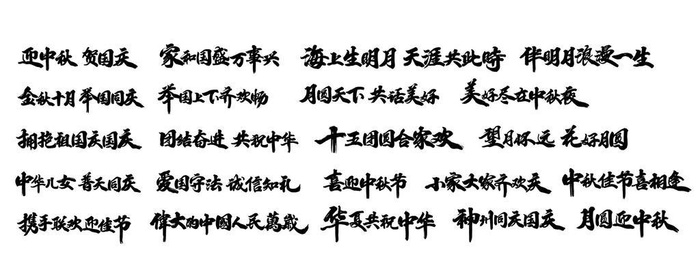 迎中秋 贺国庆 家和国盛万事兴 海上生明月 天涯共此時 伴明月浪漫一生
金秋十月 举国同庆 举国上下齐欢畅 月圆天下 共话美好 美好尽在中秋夜
拥抱祖国庆国庆 团结奋进 共祝中华 十五团圆合家欢 望月怀远 花好月圆
中华儿女 普天同庆 爱国守法 诚信知礼 喜迎中秋节 小家大家齐欢庆 中秋佳节喜相逢
携手联欢迎佳节 偉大的中國人民萬歲 华夏共祝中华 神州同庆国庆 月圆迎中秋